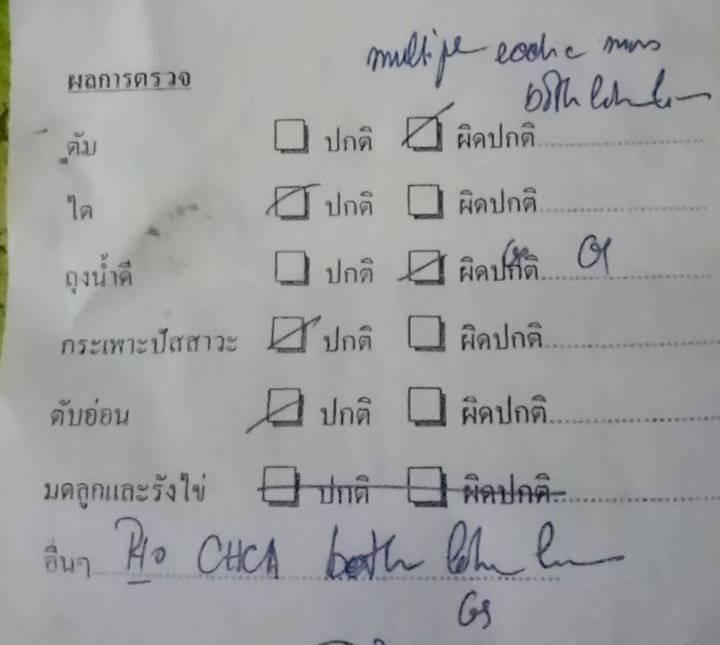 multiple echoic mass
ผลการตรวจ
both lobe liver
ตับ ปกติ ผิดปกติ
ไต ปกติ ผิดปกติ
ถุงน้ำดี ปกติ ผิดปกติ
กระเพาะปัสสาวะ ปกติ ผิดปกติ
ตับอ่อน ปกติ ผิดปกติ
มดลูกและรังไข่ ปกติ ผิดปกติ
อื่นๆ R/o CHCA both lobe liver
GS